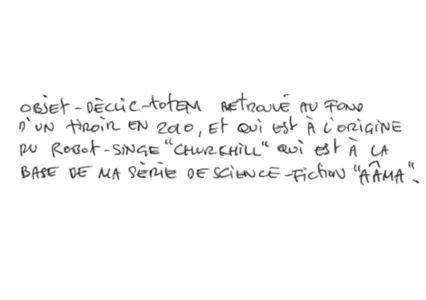 OBJET-DÉCLIC-TOTEM RETROUVÉ AU FOND
D'UN TIROIR EN 2010, ET QUI EST À L'ORIGINE
DU ROBOT-SINGE "CHURCHILL" QUI EST À LA
BASE DE MA SÉRIE DE SCIENCE-FICTION "AÂMA".